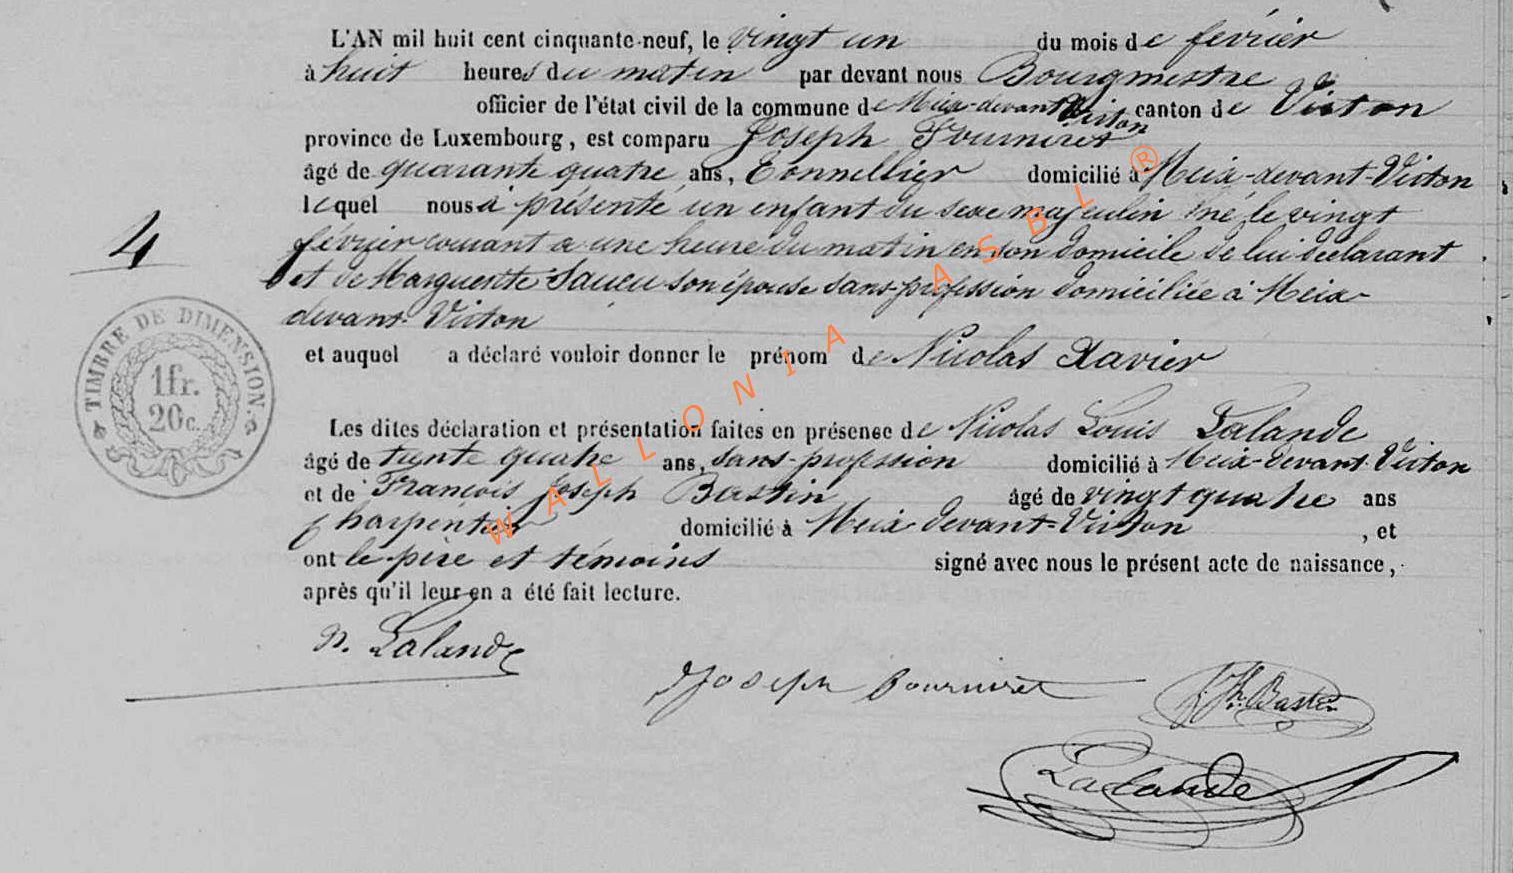 L'AN mil huit cent cinquante-neuf, le vingt un du mois de février
à huit heures du matin par devant nous Bourgmestre
officier de l'état civil de la commune de Meix-devant Virton canton de Virton
province de Luxembourg, est comparu Joseph Fourniret
âgé de quarante quatre ans, Tonnellier domicilié à Meix-devant-Virton
lequel nous à présenté un enfant du sexe masculin né le vingt
février courant a une heure du matin en son domicile de lui déclarant
et de Marguerite son épouse sans profession domiciliée à Meix-
devant-Virton
4
TIMBRE DE DIMENSION.
1fr.
20c.
et auquel a déclaré vouloir donner le prénom de Nicolas Xavier
Les dites déclaration et présentation faites en présence de Nicolas Louis Lalande
âgé de trente quatre ans, sans-profession domicilié à Meix-devant-Virton
et de François Joseph Bastin âgé de vingt quatre ans
Charpentier domicilié à Meix devant-Virton , et
ont le père et témoins signé avec nous le présent acte de naissance,
après qu'il leur en a été fait lecture.
N. Lalande
Joseph Fourniret
J. Jh. Bastin
Lalande
WALLONIA ASBL ®